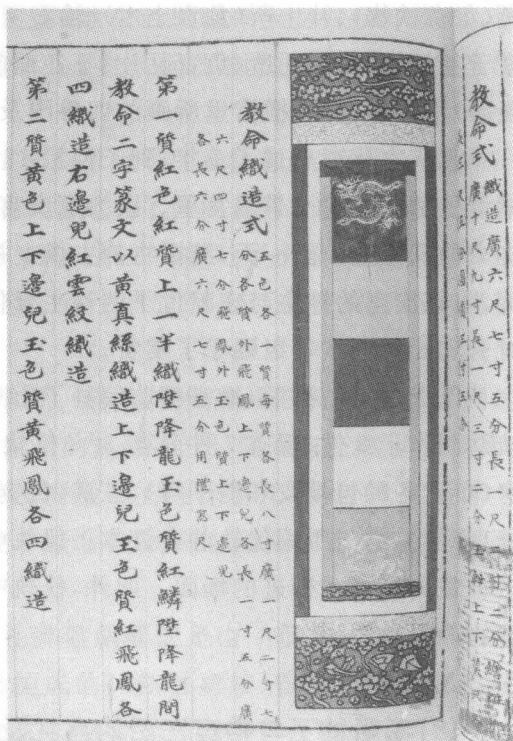 教命式 織造廣六尺七寸五分長一尺三寸三分繪粧
廣十尺九寸長一尺三寸二分玉軸上下
教命織造式 五色各一質每質各長八寸廣一尺二寸七
分各質外飛鳳上下邊兒各長一寸五分廣
六尺四寸七分飛鳳外玉色質上下邊兒
各長六分廣六尺七寸五分用禮器尺
第一質紅色紅質上一半織陞降龍玉色質紅鱗陞降龍間
教命二字篆文以黃真絲織造上下邊兒玉色質紅飛鳳各
四織造右邊兒紅雲紋織造
第二質黃色上下邊兒玉色質黃飛鳳各四織造